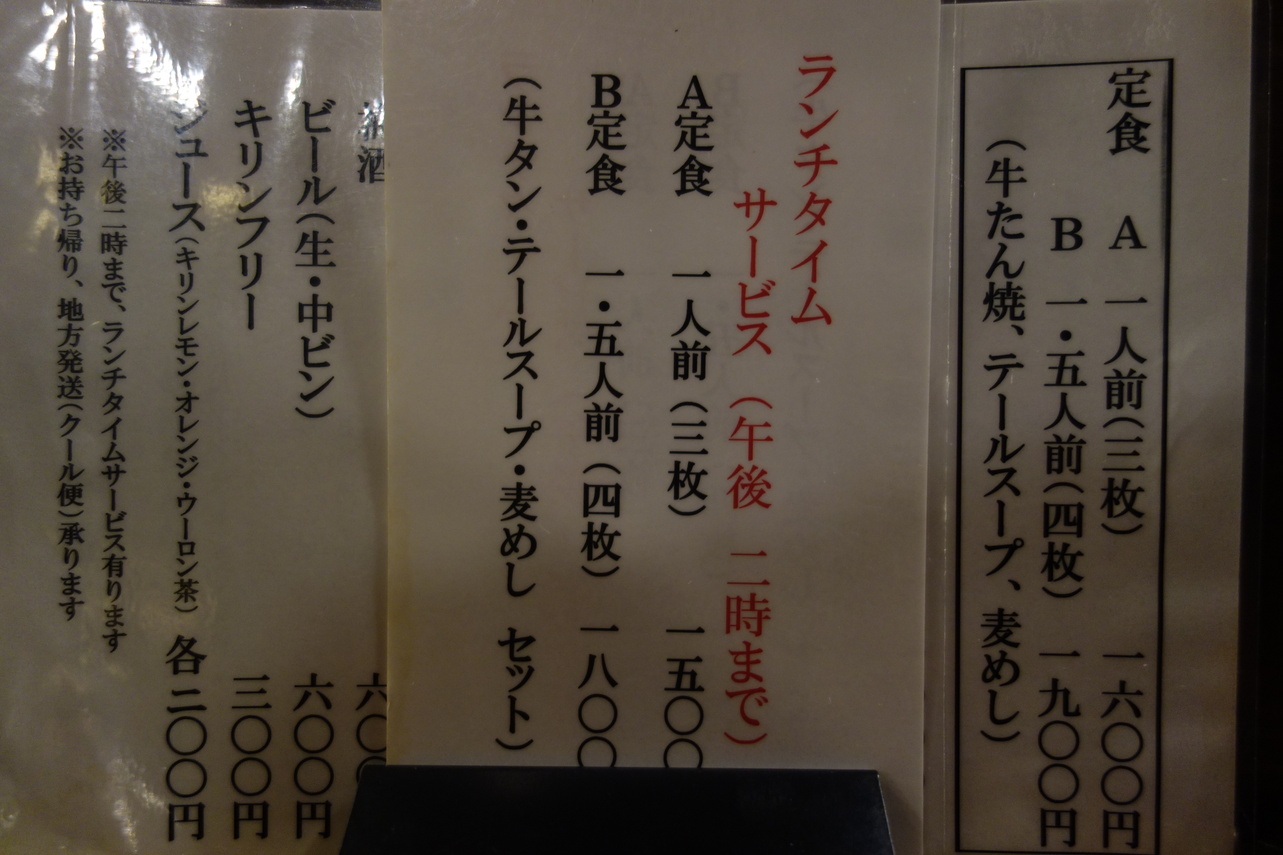 定食 A 一人前(三枚) 一六〇〇円
B 一・五人前(四枚) 一九〇〇円
(牛たん焼、テールスープ、麦めし)
ランチタイム
サービス (午後 二時まで)
A定食 一人前(三枚) 一五〇〇
B定食 一・五人前(四枚) 一八〇〇
(牛タン・テールスープ・麦めし セット)
酒 六〇〇
ビール(生・中ビン) 六〇〇円
キリンフリー 三〇〇円
ジュース(キリンレモン・オレンジ・ウーロン茶) 各二〇〇円
※午後二時まで、ランチタイムサービス有ります
※お持ち帰り、地方発送(クール便)承ります